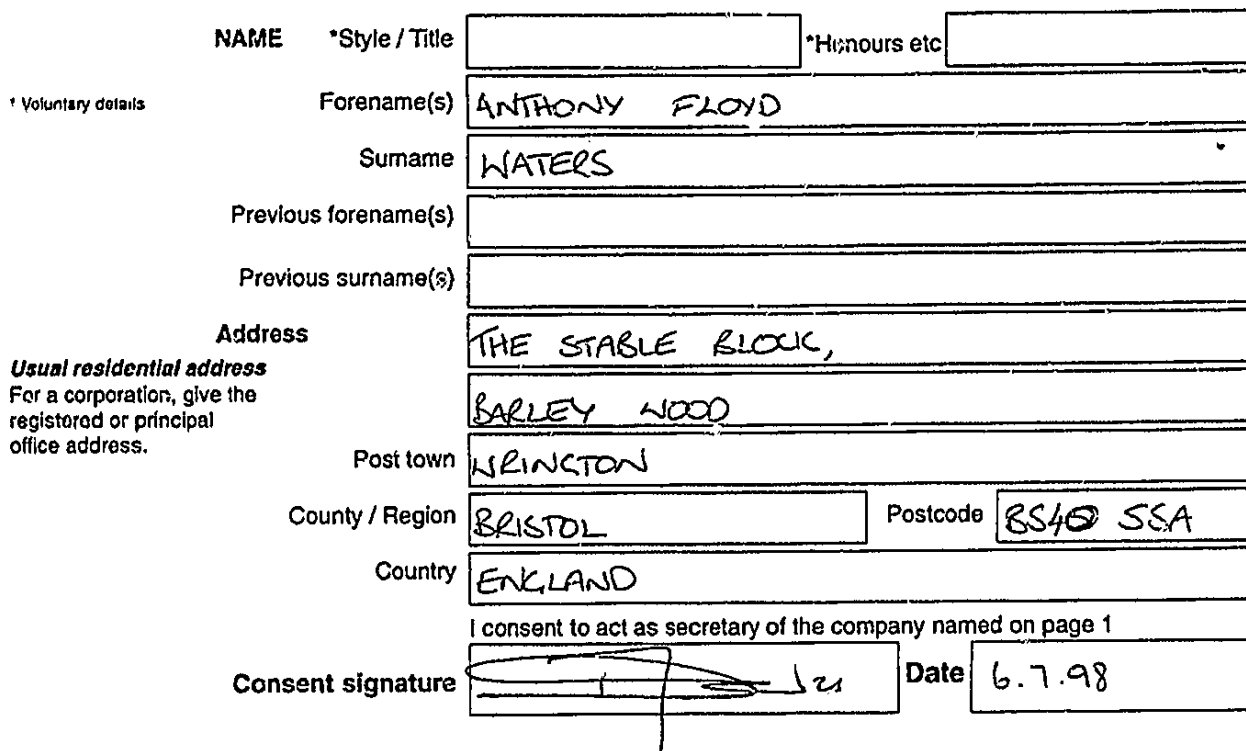 NAME *Style / Title *Honours etc
* Voluntary details Forename(s) ANTHONY FLOYD
Surname WATERS
Previous forename(s)
Previous surname(s)
Address THE STABLE BLOCK,
Usual residential address
For a corporation, give the
registered or principal
office address.
BARLEY WOOD
Post town WRINGTON
County / Region BRISTOL Postcode BS40 5SA
Country ENGLAND
I consent to act as secretary of the company named on page 1
Consent signature Date 6.7.98